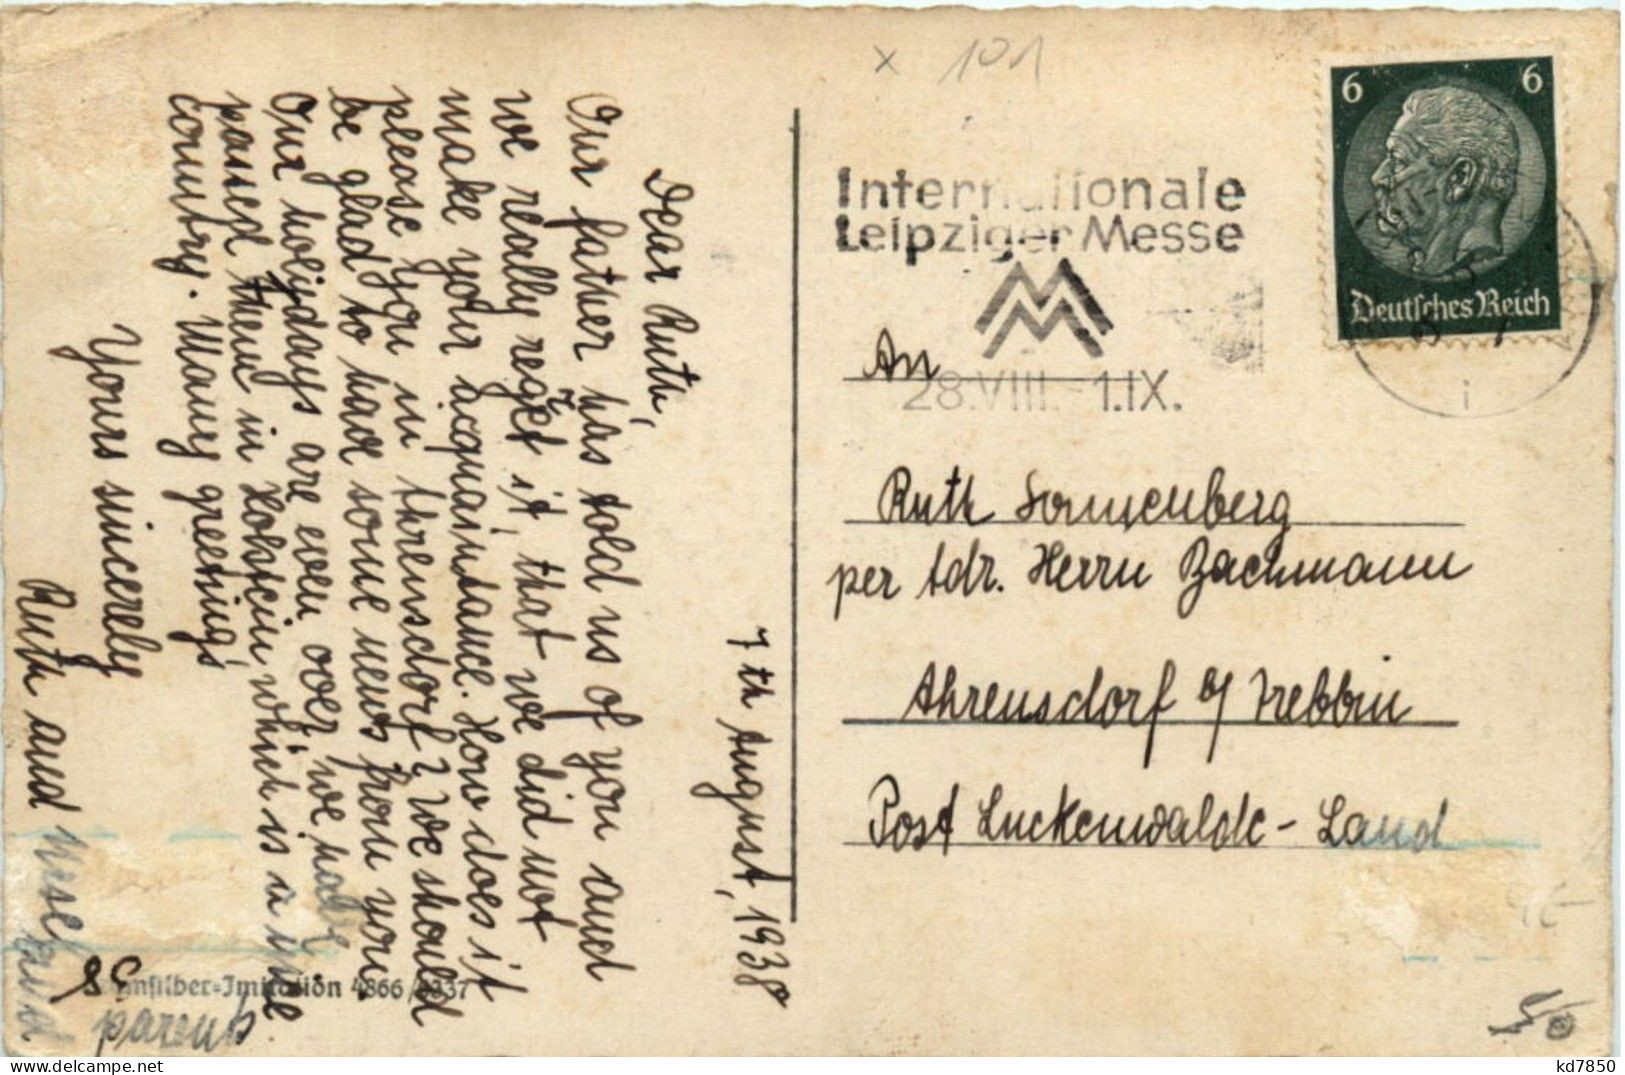 7th August, 1938
Dear Ruth,
Our father has told us of you and
we really reget it, that we did not
make your acquaintance. How does it
please you in Ahrensdorf? We should
be glad to have some news from you.
Our holijdays are even over, we have
passed them in Holstein, which is a fine
country. Many greeting's
Yours sincerely
Ruth and
and
parents
silber-Imitation 4866/4337
x 101
Internationale
Leipziger Messe
28.VIII.-1.IX.
6 6
Deutsches Reich
i
An
Ruth Sonnenberg
per Adr. Herrn Bachmann
Ahrensdorf b/ Trebbin
Post Luckenwalde-Land
kd7850